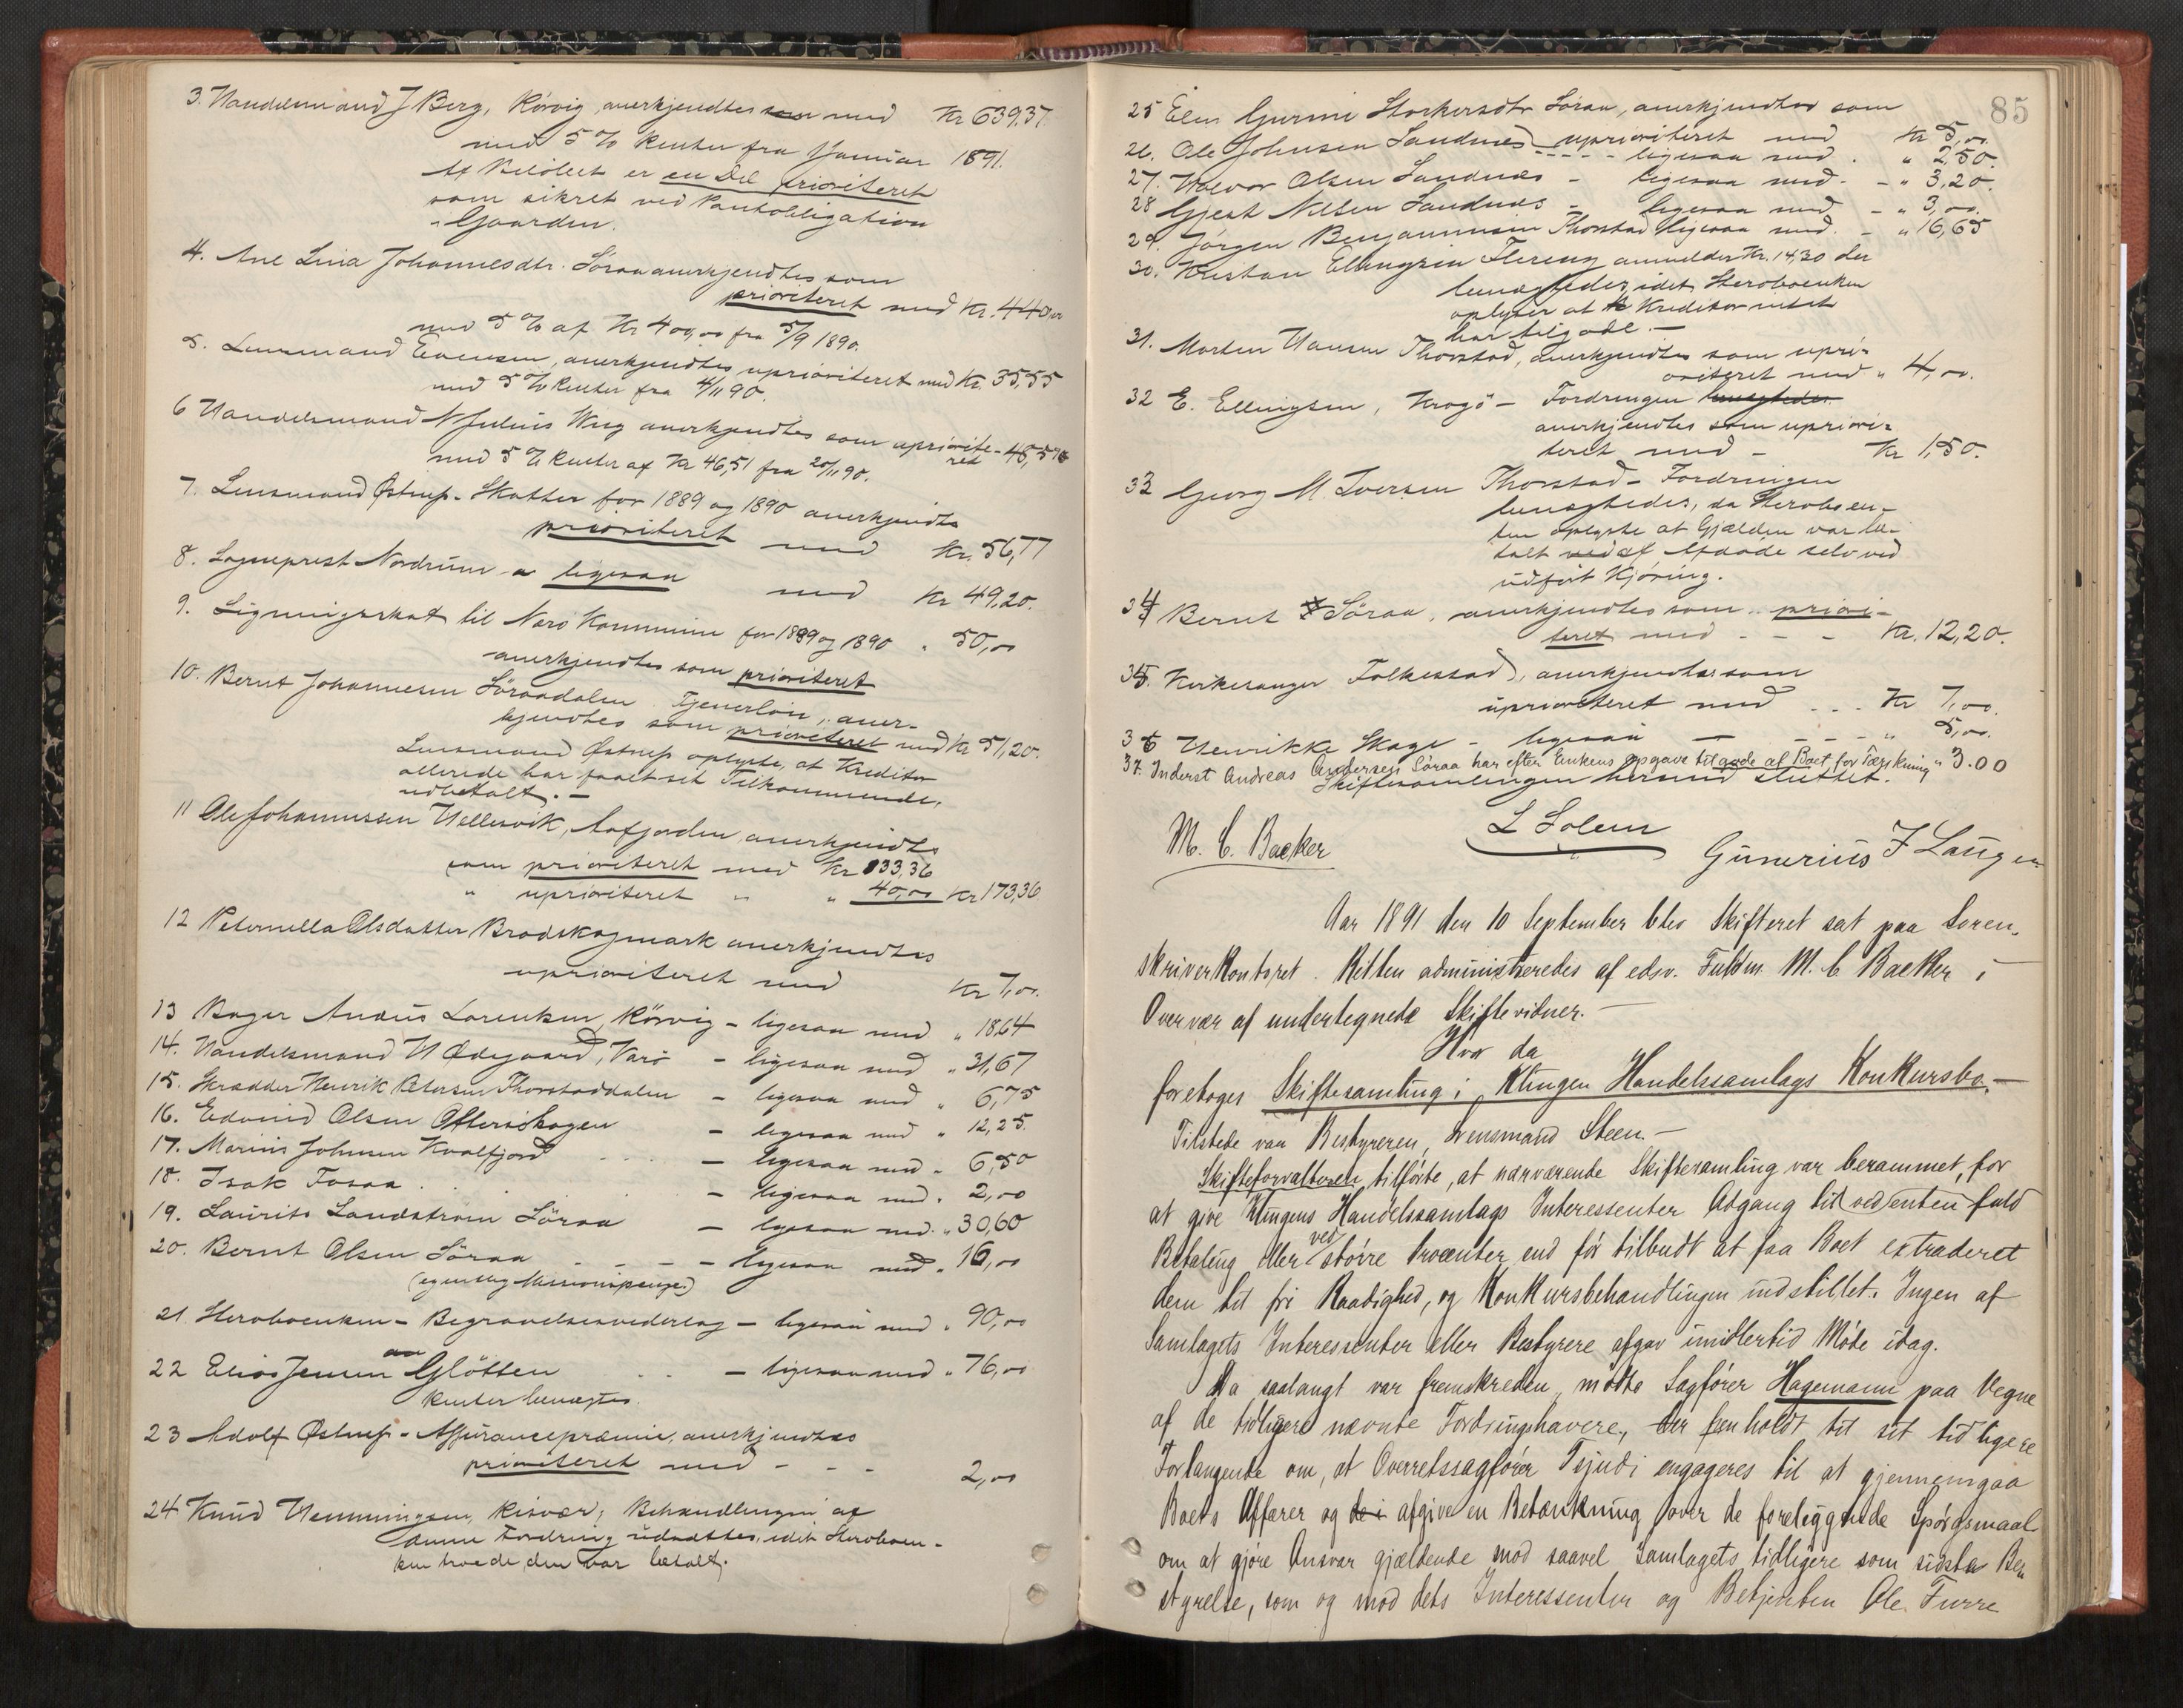 3. Handelsmand J Berg, Rörvig anerkjendtes som med Kr 639,37.
med 5 % Renter fra 1 Januar 1891.
Af Beløbet er en Del prioriteret
som sikret ved Pantobligation
i Gaarden.
4. Ane Lina Johannesdtr. Söraa anerkjendtes som
prioriteret med Kr. 440,00
med 5 % af Kr 400,00 fra 5/9 1890.
5. Lensmand Evensen, anerkjendtes uprioriteret med Kr. 35,55
med 5 % Renter fra 4/11 90.
6 Handelsmand N Julius Wug anerkjendtes som uprioriteret
med 5 % Renter af Kr 46,51 fra 20/11 90.
7. Lensmand Østrup - Skatter for 1889 og 1890 anerkjendts
prioriteret med Kr. 56,77
8. Sogneprest Nordrum - ligesaa med Kr 49,20.
9. Ligningsskat til Nærö Kommune for 1889 og 1890 " 50,00
anerkjendtes som prioriteret
10. Bernt Johannesen Söraadalen Tjenerløn, aner-
kjendtes som prioriteret med Kr 51,20.
Lensmand Østrup oplyste, at Kreditor
allerede har faaet sit Tilkommende,
udbetalt. -
11 Ole Johannessen Hellesvik, Aafjorden anerkjendts
som prioriteret med Kr 133,36
" uprioriteret " " 40,00 Kr 173,36
12 Peternella Olsdatter Brodskogmark anerkjendtes
uprioriteret med Kr 7,00.
13 Bager Anæus Lorentsen, Rörvig - ligesaa med " 18,64
14. Handelsmand H Ødegaard, Varö - ligesaa med " 31,67
15. Skrædder Henrik Petersen Thorstaddalen - ligesaa med " 6,75
16. Edvind Olsen Ofterøhagen - ligesaa med " 12,25.
17. Marius Johnsen Kvalfjord - ligesaa med " 6,50
18. Isak Fosaa - ligesaa med " 2,00
19. Laurits Landstrøm Söraa - ligesaa med. " 30,60
20. Bernt Olsen Söraa - ligesaa med " 16,00
(egentlig Missionspenge)
21. Stervboenken - Begravelsesvederlag - ligesaa med " 90,00
22 Elias Jensen Glötten - ligesaa med " 76,00
Renter benægtes.
23 Adolf Østrup - Assurancepræmie, anerkjendtes
prioriteret med - - - 2,00
24 Knud Hemmingsen, Risvær; Behandlingen af
denne Fordring udsattes, idet Stervboen-
ken troede, den var betalt.
85
25 Elen Gurine Storkersdtr Söraa, anerkjendtes som
uprioriteret med Kr 5,00.
26. Ole Johnsen Sandnes - - - - - ligesaa med . " 2,50.
27. Halvor Olsen Sandnes - ligesaa med - " 3,20.
28 Gjert Nilsen Sandnes - ligesaa med - " 3,00.
29. Jørgen Benjaminsen Thorstad ligesaa med. - " 16,65
30. Kristian Ellingsen Flereng anmelder Kr. 14,30 der
benægtedes, idet Stervboenken
oplyser at Kreditor intet
har tilgode. -
31. Morten Hansen Thorstad, anerkjendtes som upri-
oriteret med " 4,00.
32 E. Ellingsen, Krogö - Fordringen benægtedes
anerkjendtes som upriori-
teret med - Kr 1,50.
33 Georg M. Iversen Thorstad - Fordringen
benægtedes, da Stervboen-
ken oplyste at Gjælden var be-
talt ved af Afdøde selv ved
udført Kjøring.
34 Bernt Söraa, anerkjendtes som priori-
teret med - - - Kr. 12,20.
35. Kirkesanger Folkestad, anerkjendtes som
uprioriteret med . . . Kr 7,00.
36 Henrikke Skage - ligesaa - - - - " 5,00.
37. Inderst Andreas Andersen Söraa har efter Enkens Opgave tilgode af Boet for Tærskning " 3.00
Skiftesamlingen hermed sluttet.
M. C. Backer L Solem Gunerius J Laugen
Aar 1891 den 10 September blev Skifteret sat paa Soren-
skriverkontoret. Retten administreredes af edsv. Fuldm. M. C. Backer i
Overvær af undertegnede Skiftevidner. -
Hvor da
foretoges Skiftesamling i Klingen Handelssamlags Konkursbo. -
Tilstede var Bestyreren, Lensmand Steen. -
Skifteforvalteren tilførte, at nærværende Skiftesamling var berammet, for
at give Klingens Handelssamlags Interessenter Adgang til ved enten fuld
Betaling eller ved større Procenter end før tilbudt at faa Boet extraderet
dem til fri Raadighed, og Konkursbehandlingen indstillet. Ingen af
Samlagets Interessenter eller Bestyrere afgav imidlertid Møde idag.
Da saalangt var fremskreden, mødte Sagfører Hagemann paa Vegne
af de tidligere nævnte Fordringshavere, der henholdt til sit tidligere
Forlangende om, at Overretssagfører Tejudi engageres til at gjennemgaa
Boets Affærer og afgive en Betænkning over de foreliggende Spørgsmaal
om at gjøre Ansvar gjældende mod saavel Samlagets tidligere som sidste Be-
styrelse, som og mod dets Interessenter og Betjenten Ole Furre